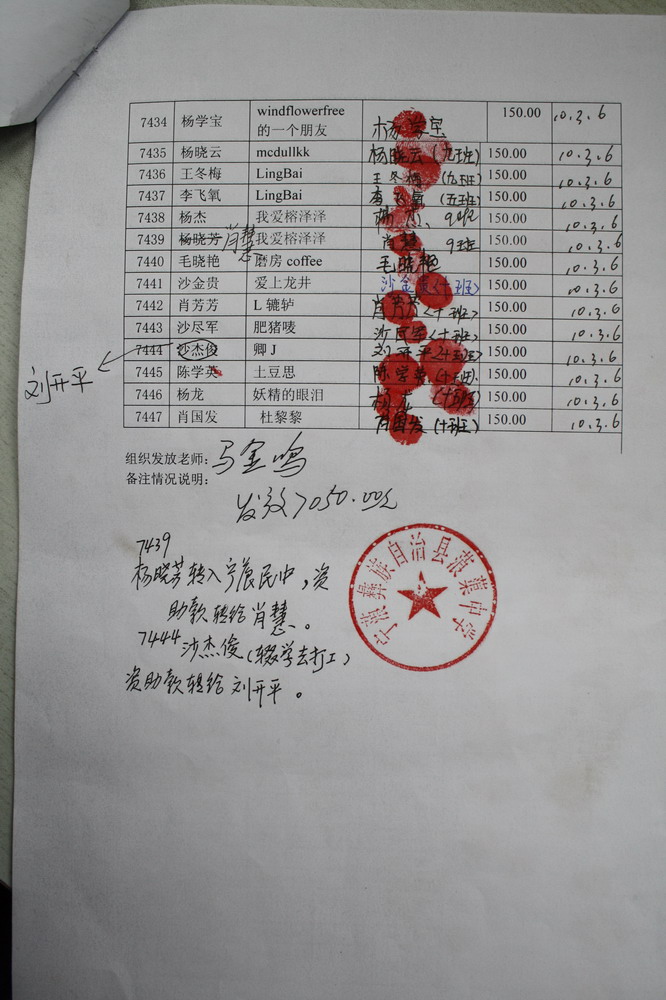 7434 杨学宝 windflowerfree 的一个朋友 杨学宝 150.00 10.3.6
7435 杨晓云 mcdullkk 杨晓云(九班) 150.00 10.3.6
7436 王冬梅 LingBai 王冬梅(九班) 150.00 10.3.6
7437 李飞氧 LingBai 李飞氧(五班) 150.00 10.3.6
7438 杨杰 我爱榕泽泽 杨杰 9班 150.00 10.3.6
7439 杨晓芳 肖慧 我爱榕泽泽 肖慧 9班 150.00 10.3.6
7440 毛晓艳 磨房 coffee 毛晓艳 150.00 10.3.6
7441 沙金贵 爱上龙井 沙金贵(十班) 150.00 10.3.6
7442 肖芳芳 L 辘轳 肖芳芳(十班) 150.00 10.3.6
7443 沙尽军 肥猪唛 沙尽军(十班) 150.00 10.3.6
7444 沙杰俊 卿 J 刘开平(十班) 150.00 10.3.6
刘开平
7445 陈学英 土豆思 陈学英(十班) 150.00 10.3.6
7446 杨龙 妖精的眼泪 杨龙(十班) 150.00 10.3.6
7447 肖国发 杜黎黎 肖国发(十班) 150.00 10.3.6
组织发放老师：马金鸣
备注情况说明：
发放7050.00元
7439
杨晓芳转入宁蒗民中，资
助款转给肖慧。
7444 沙杰俊(辍学去打工)
资助款转给刘开平。
宁蒗彝族自治县蒗蕖中学